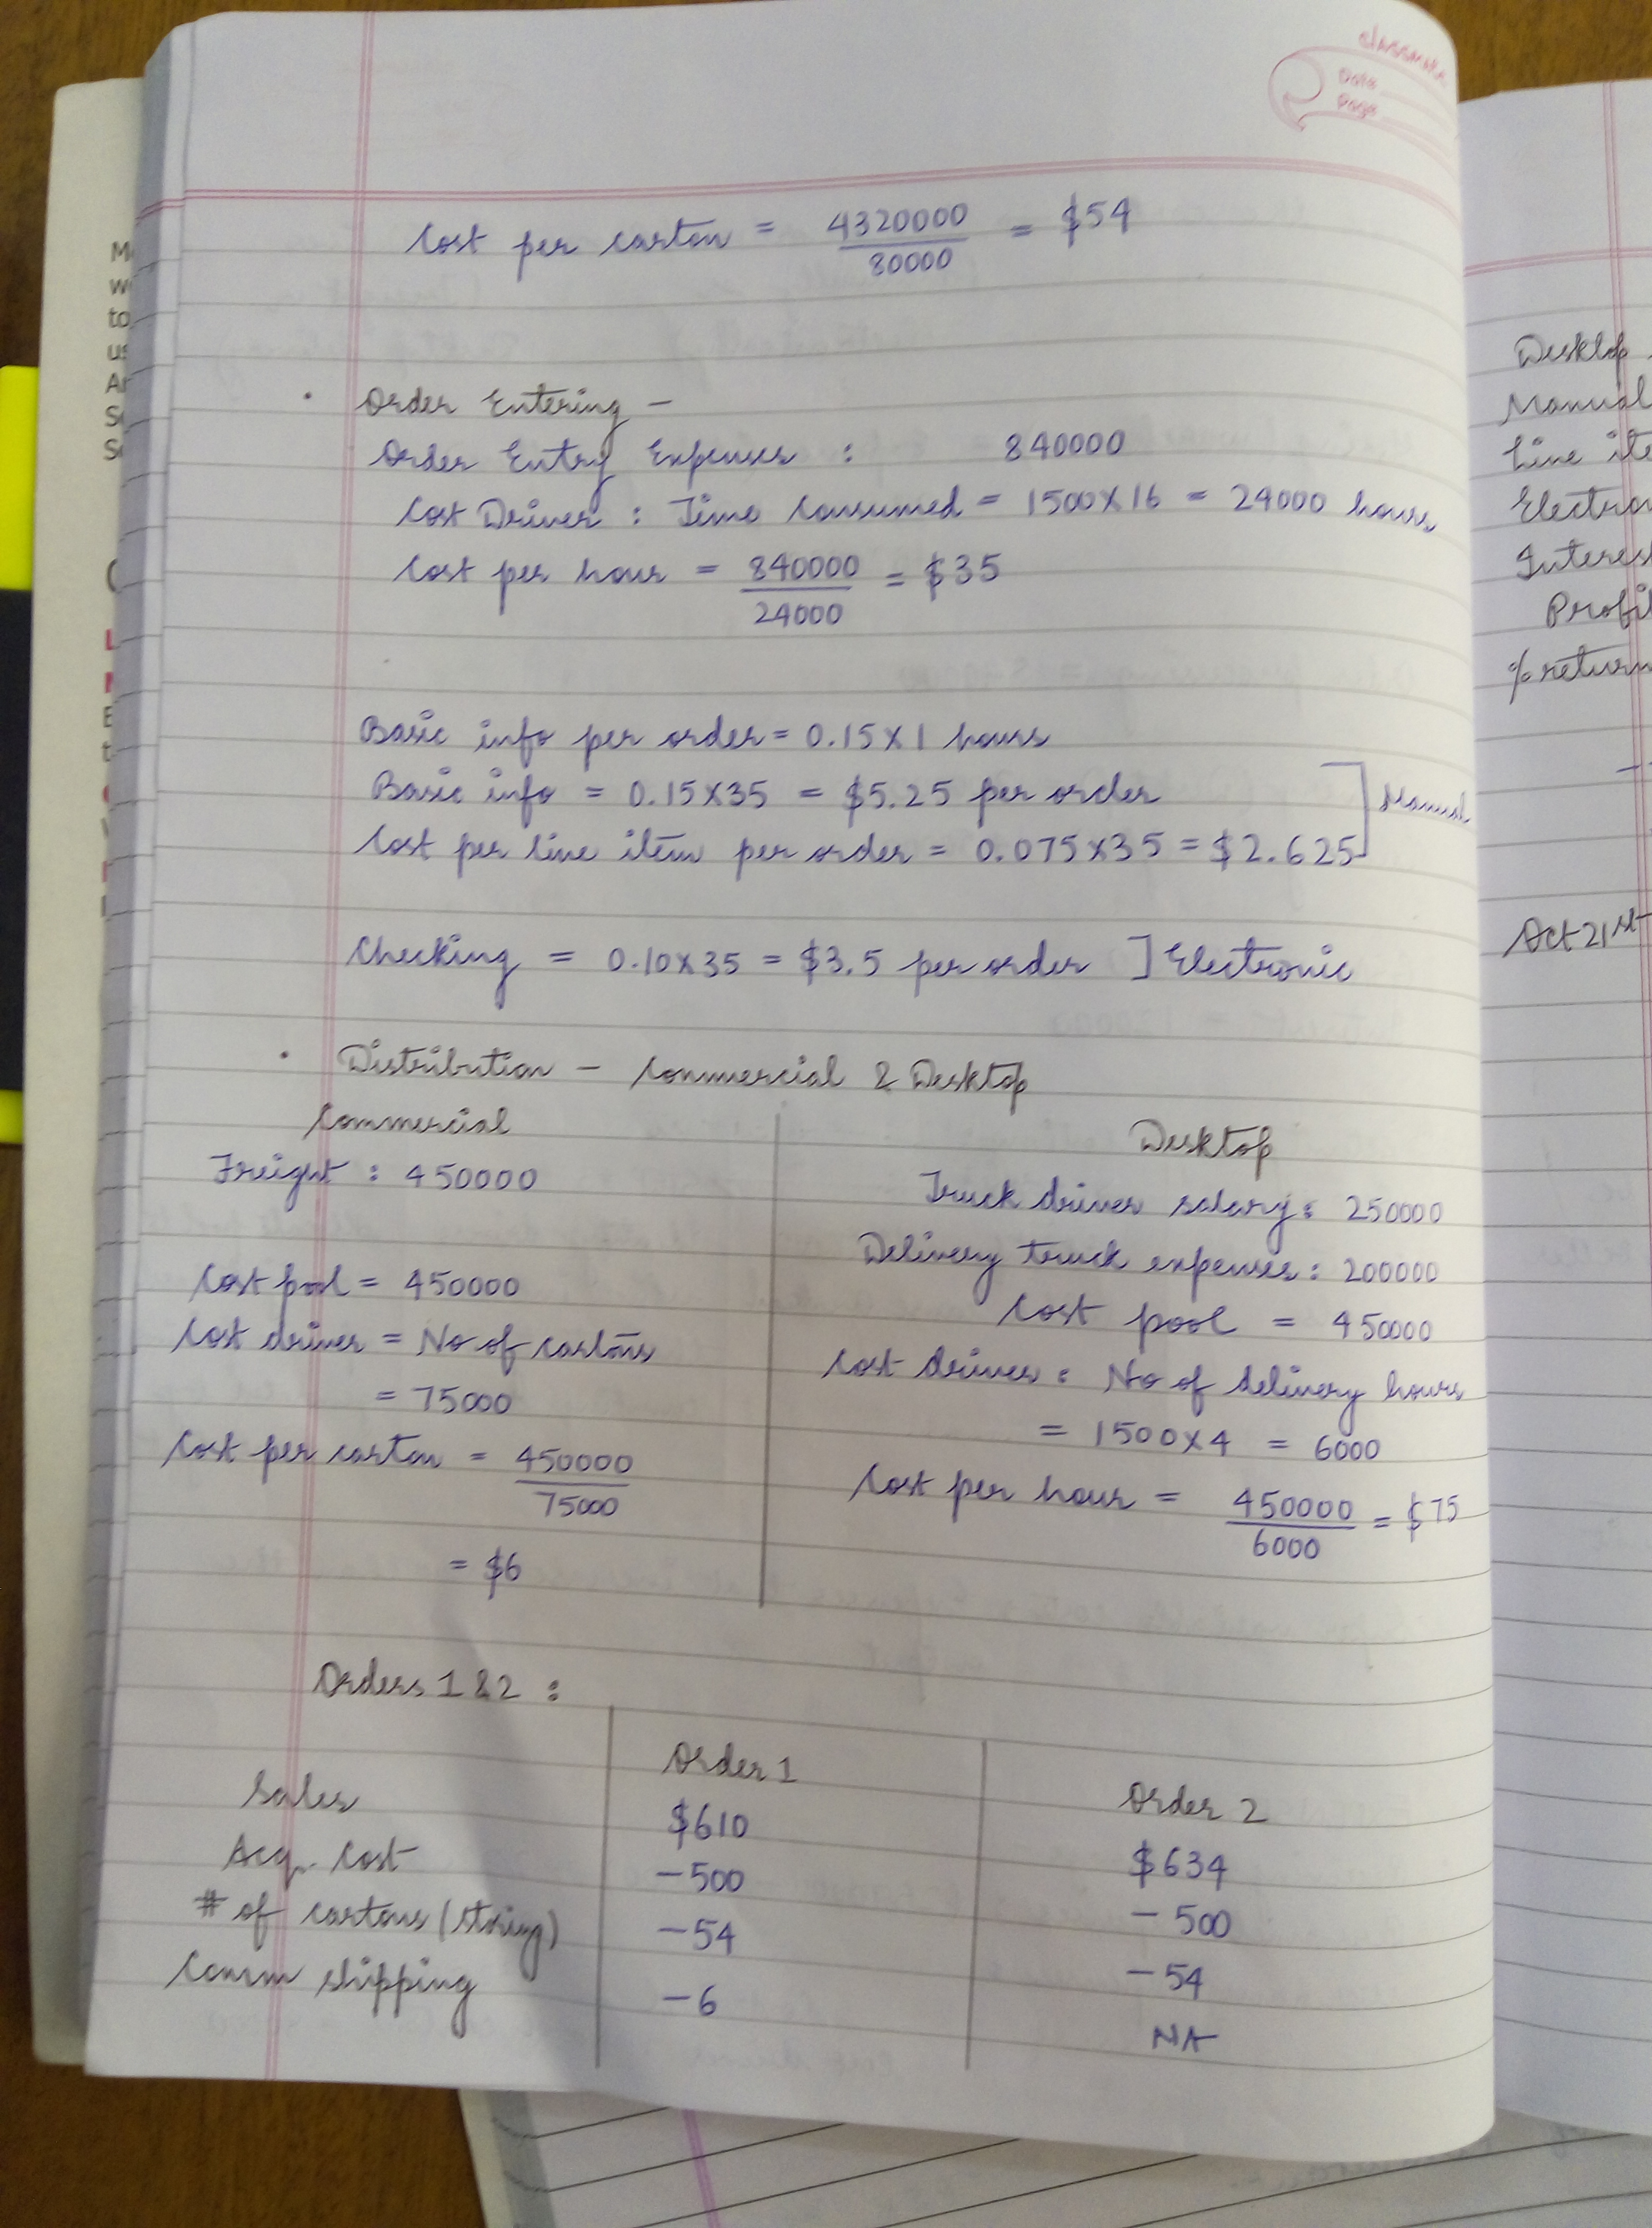 classmate
Date
Page
Cost per carton = 4320000 / 80000 = $54
• Order Entering –
Order Entry Expenses : 840000
Cost Driver : Time Consumed = 1500×16 = 24000 hours
Cost per hour = 840000 / 24000 = $35
Basic info per order = 0.15×1 hours
Basic info = 0.15×35 = $5.25 per order
Cost per line item per order = 0.075×35 = $2.625
] Manual
Checking = 0.10×35 = $3.5 per order ] Electronic
• Distribution – Commercial & Desktop
Commercial
Freight : 450000
Cost pool = 450000
Cost driver = No of cartons
= 75000
Cost per carton = 450000 / 75000
= $6
Desktop
Truck driver salary : 250000
Delivery truck expenses : 200000
Cost pool = 450000
Cost driver : No of delivery hours
= 1500×4 = 6000
Cost per hour = 450000 / 6000 = $75
Orders 1 & 2 :
Order 1 Order 2
Sales $610 $634
Acq. Cost –500 –500
# of cartons (storing) –54 –54
Comm shipping –6 NA
Desktop
Manual
Line
Profi
% return
Oct 21st